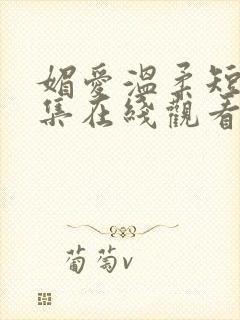 媚愛溫柔短
集在綫觀看
葡萄v